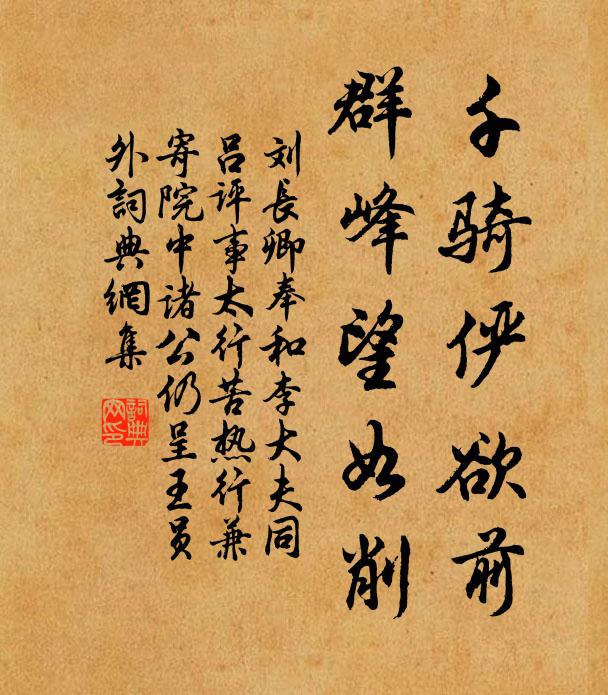 千骑俨欲前
群峰望如削
刘長卿奉和李大夫同
吕评事太行苦热行兼
寄院中诸公仍呈王员
外詞典網集
詞典
网印